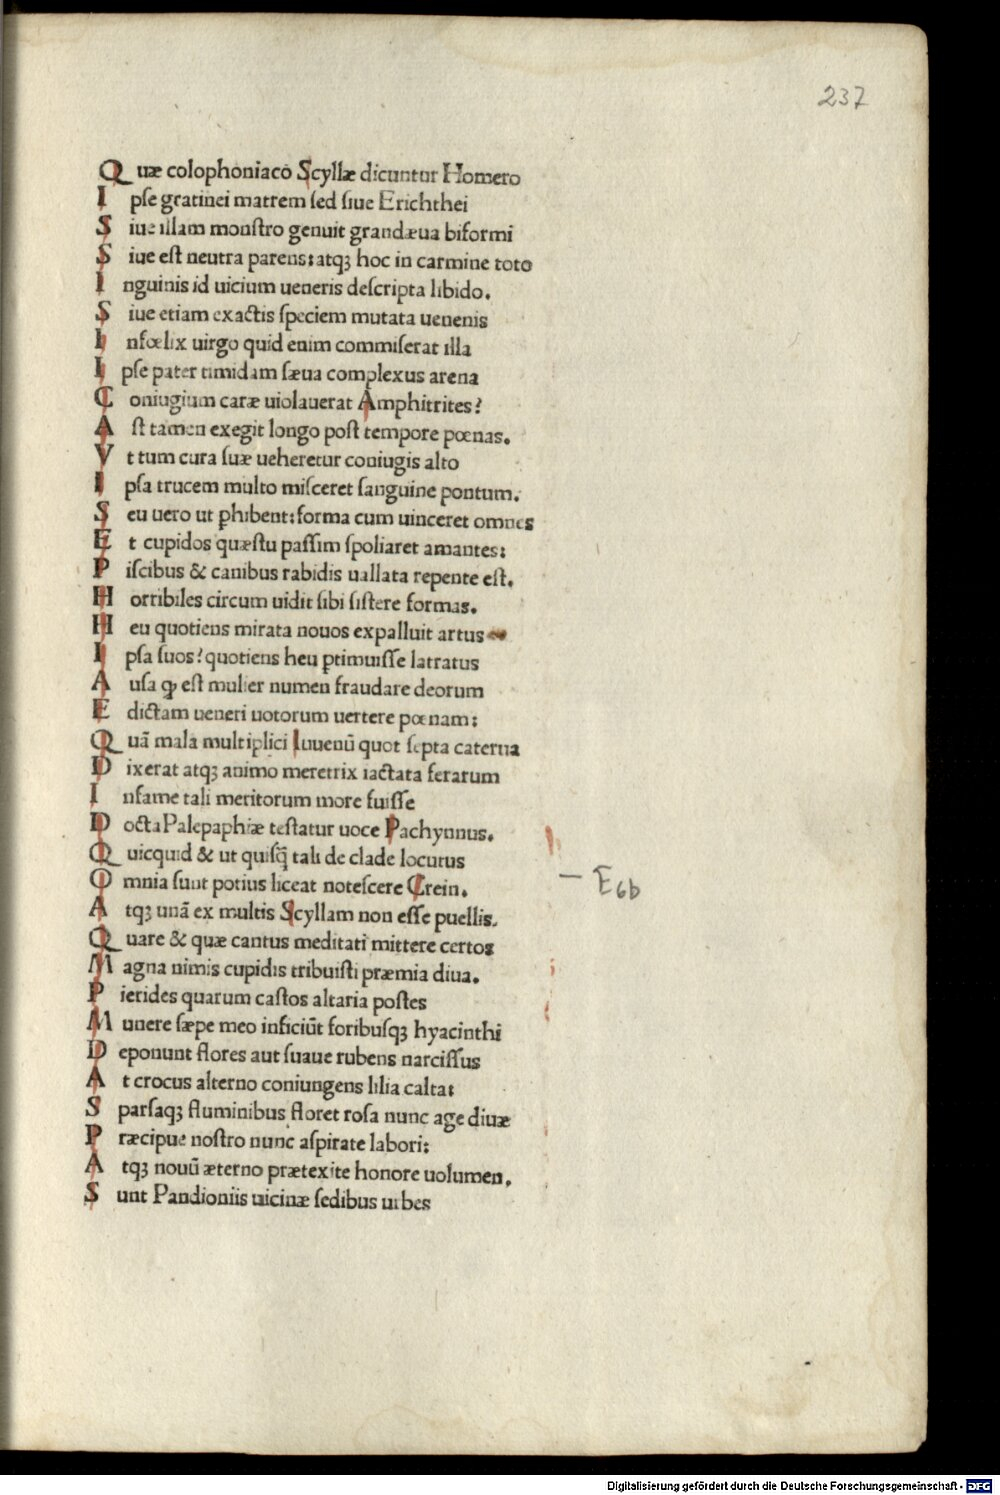 237
Quæ colophoniaco Scyllæ dicuntur Homero
Ipse gratinei matrem sed siue Erichthei
Siue illam monstro genuit grandæua biformi
Siue est neutra parens: atqꝫ hoc in carmine toto
Inguinis id uicium ueneris descripta libido.
Siue etiam exactis speciem mutata uenenis
Infœlix uirgo quid enim commiserat illa
Ipse pater timidam sæua complexus arena
Coniugium caræ uiolauerat Amphitrites?
Ast tamen exegit longo post tempore pœnas.
Vt tum cura suæ ueheretur coniugis alto
Ipsa trucem multo misceret sanguine pontum.
Seu uero ut ꝑhibent: forma cum uinceret omnes
Et cupidos quæstu passim spoliaret amantes:
Piscibus & canibus rabidis uallata repente est.
Horribiles circum uidit sibi sistere formas.
Heu quotiens mirata nouos expalluit artus
Ipsa suos? quotiens heu ꝑtimuisse latratus
Ausa ꝙ est mulier numen fraudare deorum
Edictam ueneri uotorum uertere pœnam:
Quã mala multiplici Iuuenũ quot septa caterua
Dixerat atqꝫ animo meretrix iactata ferarum
Infame tali meritorum more fuisse
Docta Palepaphiæ testatur uoce Pachynnus.
Quicquid & ut quisq̃ tali de clade locutus
Omnia sunt potius liceat notescere Crein.
Atqꝫ unã ex multis Scyllam non esse puellis.
Quare & quæ cantus meditati mittere certos
Magna nimis cupidis tribuisti præmia diua.
Pierides quarum castos altaria postes
Munere sæpe meo inficiũt foribusqꝫ hyacinthi
Deponunt flores aut suaue rubens narcissus
At crocus alterno coniungens lilia calta:
Sparsaqꝫ fluminibus floret rosa nunc age diuæ
Præcipue nostro nunc aspirate labori:
Atqꝫ nouũ æterno prætexite honore uolumen.
Sunt Pandioniis uicinæ sedibus urbes
— E6b
Digitalisierung gefördert durch die Deutsche Forschungsgemeinschaft - DFG